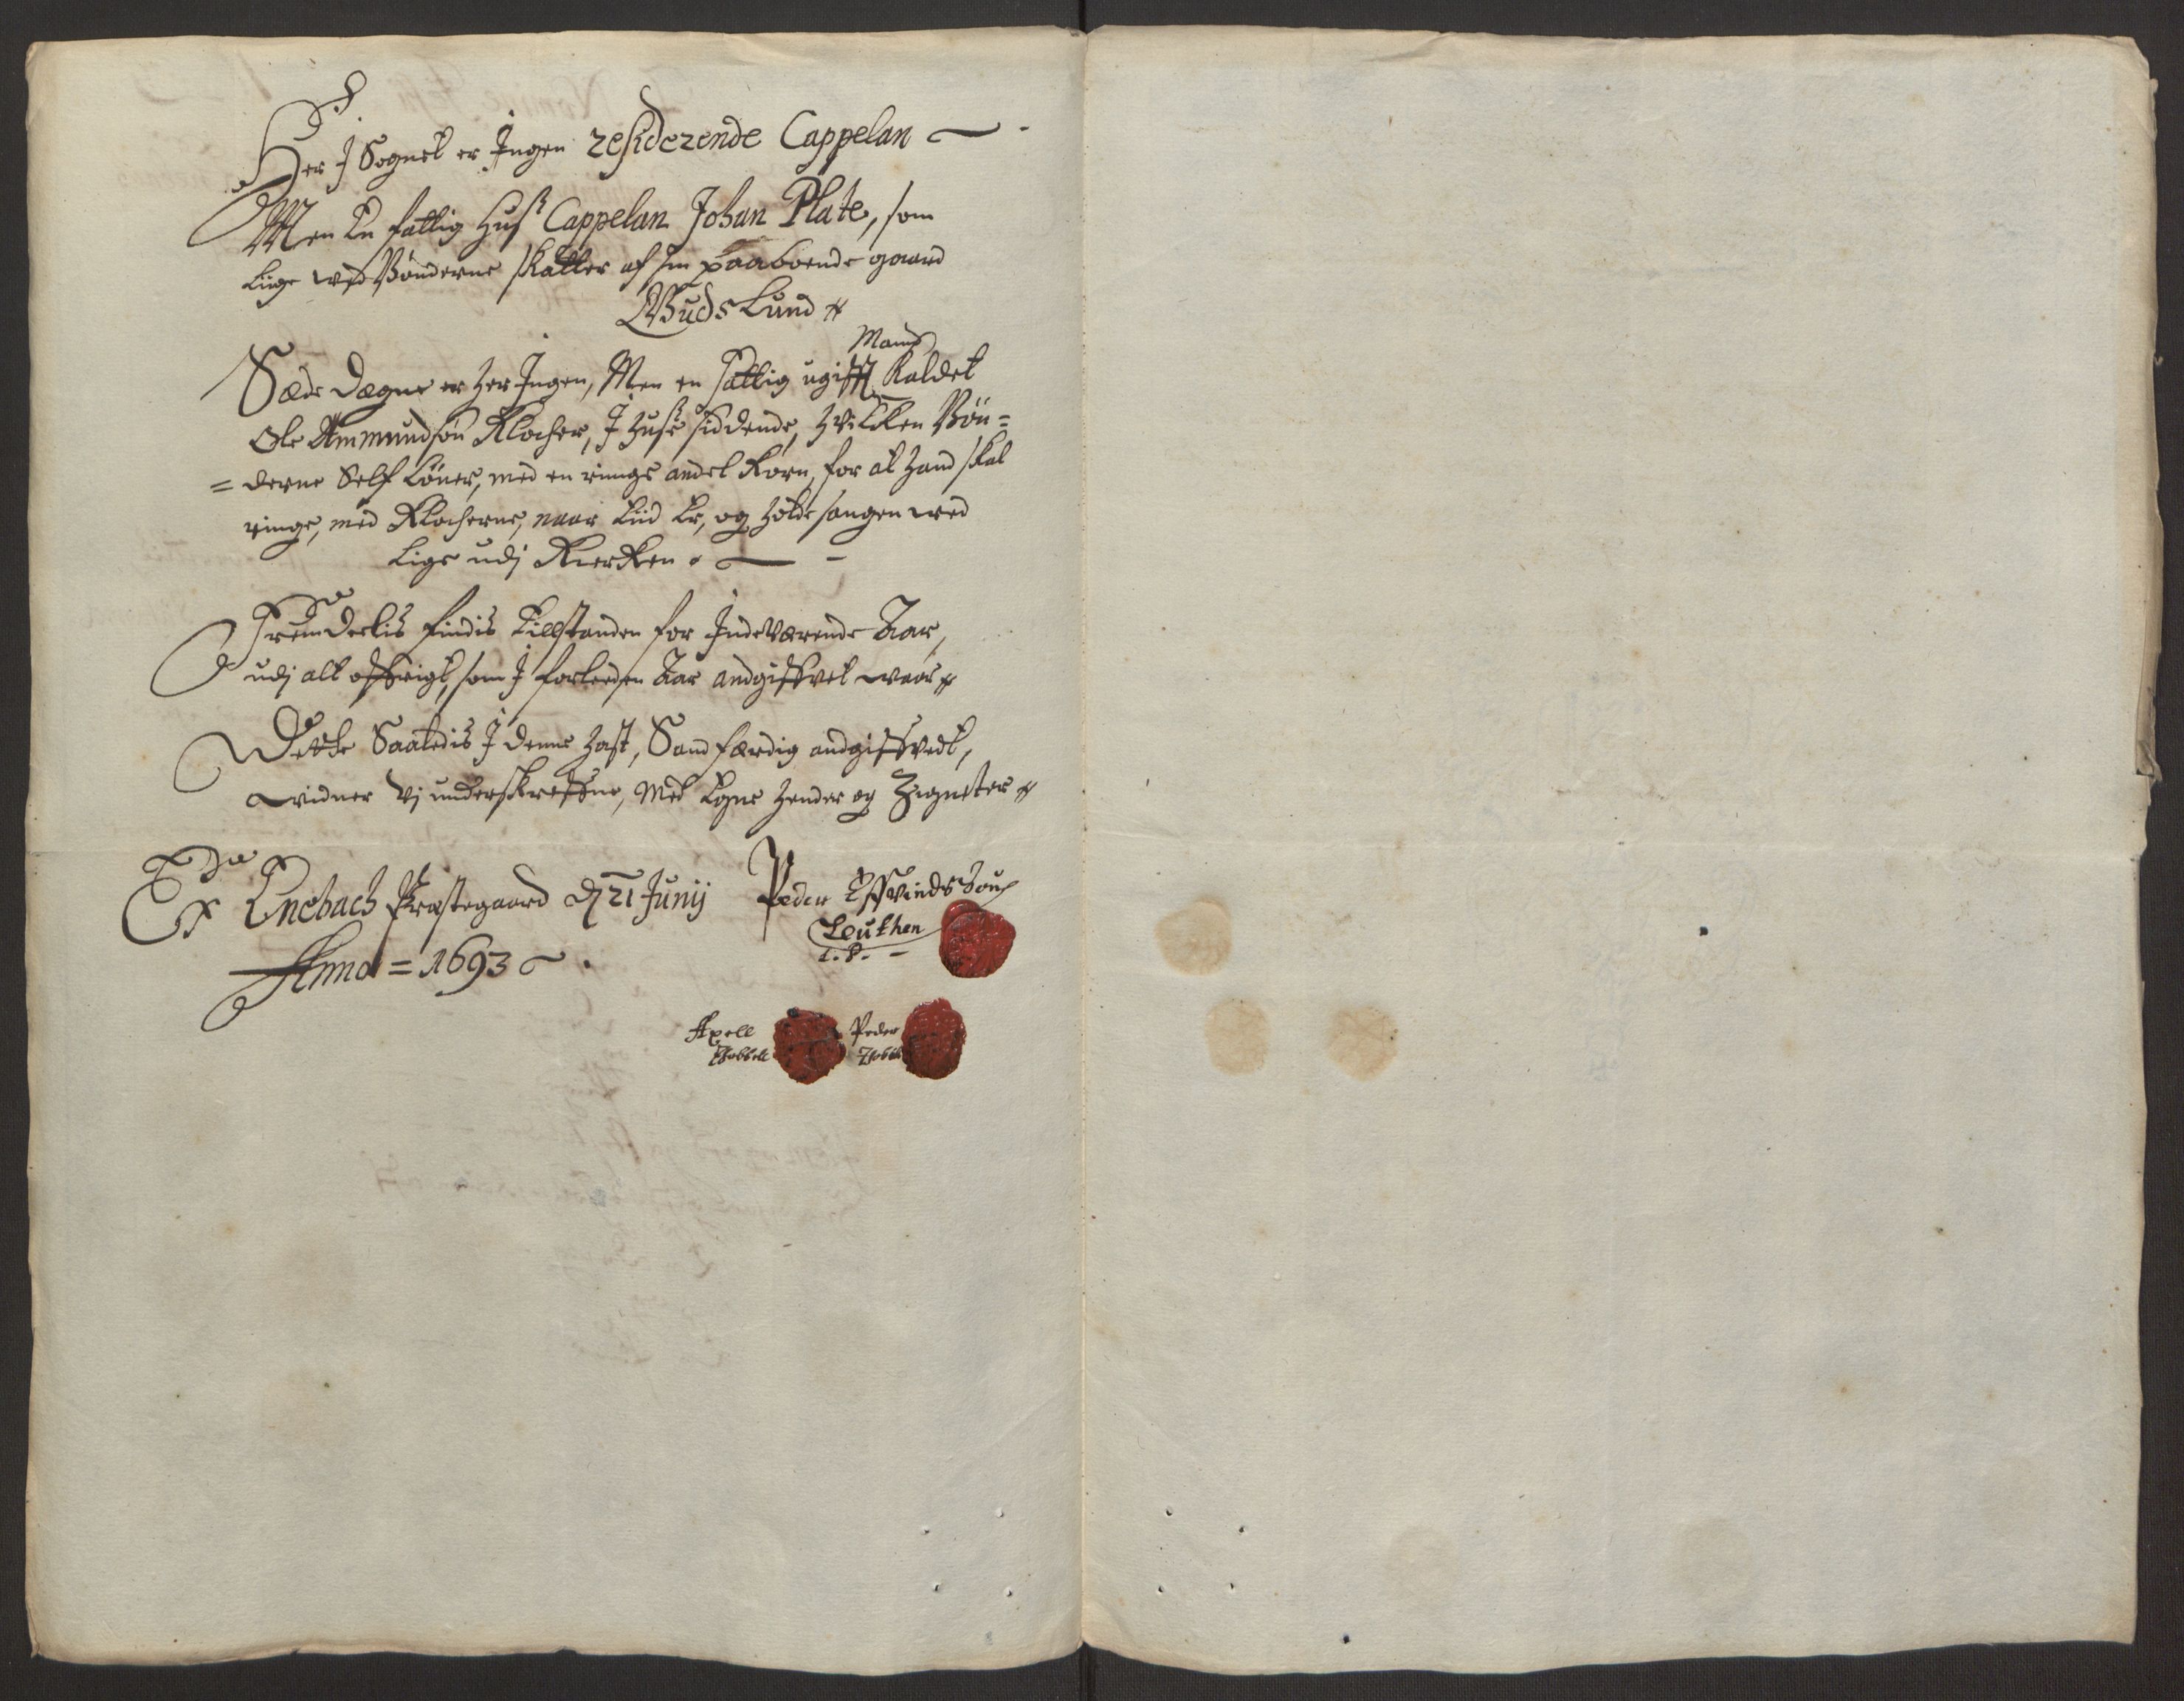 Her J Sognet er Jngen residerende Cappelan
Men En fattig Huss Cappelan Johan Plate, som
Liige wed Bønderne skatter af sin paaboende gaard
Gudslund
Mand
Sæde Dægne er her Jngen, Men en fattig ugifft Kaldet
Ole Ammundsøn Klocher, J Huse siddende, hvilcken Bøn=
=derne Self Løner, med en ringe andel Korn, for at hand skal
ringe, med Klocherne, naar tiid er, og holde sangen wed
Lige udj Kiercken
Fremdeelis findis tilstanden for Jndeværende Aar,
udj alt øffrigt, som J forleeden Aar andgiffvet waar
Dette Saaledis J denne hast, Sandfærdig andgiffvedt,
widner Vj underskreffne, Med Egne hender og Zigneter
Ex Enebach Præstegaard d 21 Junij
Anno = 1693
Peder Effvinds Søn
Leuthen
L. S.
Axell
Peder